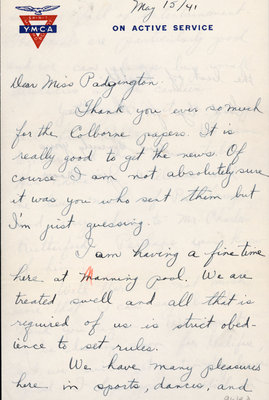 May 15/41
YMCA
ON ACTIVE SERVICE
Dear Miss Padgington.
Thank you ever so much
for the Colborne papers. It is
really good to get the news. Of
course I am not absolutely sure
it was you who sent them but
I'm just guessing.
I am having a fine time
here at Manning pool. We are
treated swell and all that is
required of us is strict obed-
ience to set rules.
We have many pleasures
here in sports, dances, and